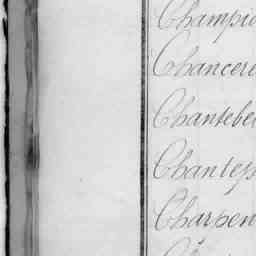 Champio
Chancere
Chantebe
Chantep
Charpen